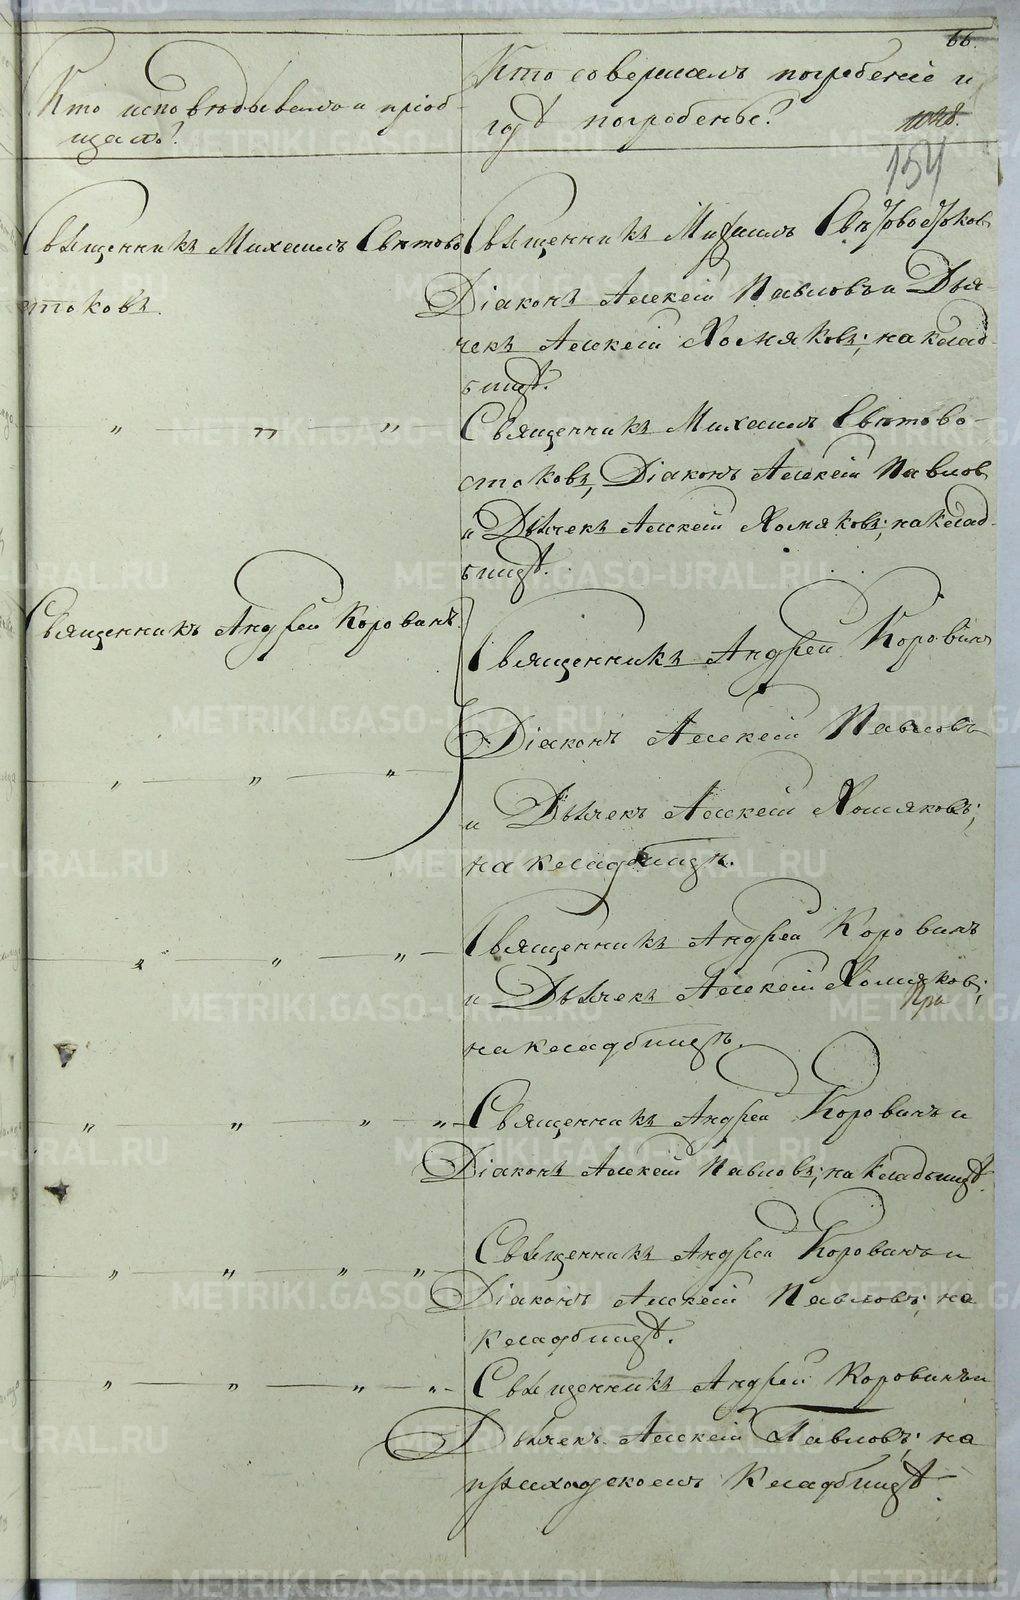 66.
154
Кто исповѣдывалъ и пріоб-
щалъ?
Кто совершалъ погребеніе и
гдѣ погребены?
Священникъ Михаилъ Свѣтово-
стоковъ.
Священникъ Михаилъ Свѣтовостоковъ
Діаконъ Алексій Павловъ и Дья-
чекъ Алексій Хомяковъ; на клад-
бищѣ.
" " "
Священникъ Михаилъ Свѣтово-
стоковъ, Діаконъ Алексій Павловъ
и Дьячекъ Алексій Хомяковъ; на клад-
бищѣ.
Священникъ Андрей Коровинъ.
Священникъ Андрей Коровинъ
Діаконъ Алексій Павловъ
" " "
и Дьячекъ Алексій Хомяковъ;
на кладбищѣ.
" " "
Священникъ Андрей Коровинъ
и Дьячекъ Алексій Хомяковъ;
на кладбищѣ.
" " " "
Священникъ Андрей Коровинъ и
Діаконъ Алексій Павловъ; на кладбищѣ.
" " " "
Священникъ Андрей Коровинъ и
Діаконъ Алексій Павловъ; на
кладбищѣ.
" " " "
Священникъ Андрей Коровинъ и
Дьячекъ Алексій Павловъ; на
приходскомъ кладбищѣ.
METRIKI.GASO-URAL.RU